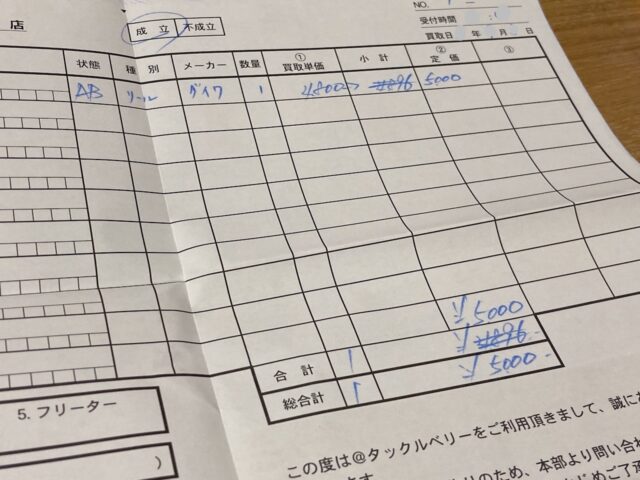 店
成立 不成立
NO.
受付時間
買取日 年 月 日
状態 種別 メーカー 数量 ① 買取単価 小計 ② 定価 ③
AB リール ダイワ 1 5000
¥5000
合計 1
総合計 1 ¥5000
5. フリーター
)
この度は@タックルベリーをご利用頂きまして、誠に
のため、本部より問い合